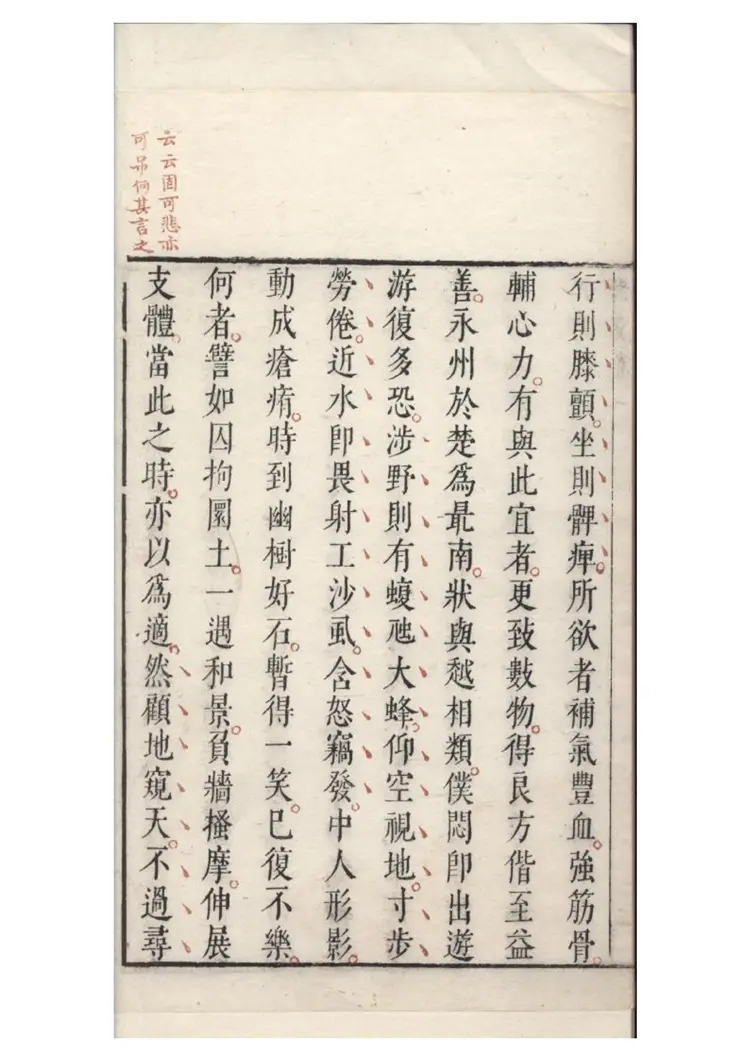 云云固可悲亦
可吊何其言之
行則膝顫。坐則髀痺。所欲者補氣豐血。強筋骨。
輔心力。有與此宜者。更致數物。得良方偕至益
善。永州於楚爲最南。狀與越相類。僕悶卽出遊
游復多恐。涉野則有蝮虺大蜂。仰空視地。寸步
勞倦。近水卽畏射工沙虱。含怒竊發。中人形影。
動成瘡痏。時到幽樹好石。暫得一笑。已復不樂。
何者。譬如囚拘圜土。一遇和景。負牆搔摩。伸展
支體。當此之時。亦以爲適。然顧地窺天。不過尋